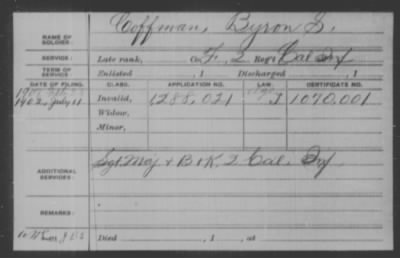 NAME OF SOLDIER: Coffman, Byron S.
SERVICE: Late rank, Co. F, 2 Reg't Cal Inf
TERM OF SERVICE: Enlisted , 1 Discharged , 1
DATE OF FILING. CLASS. APPLICATION NO. LAW. CERTIFICATE NO.
1902, July 11 Invalid, 1288,021 1,070,001
Widow,
Minor,
ADDITIONAL SERVICES: Sgt. Maj & B & K. 2 Cal. Inf
REMARKS:
Died , 1 , at